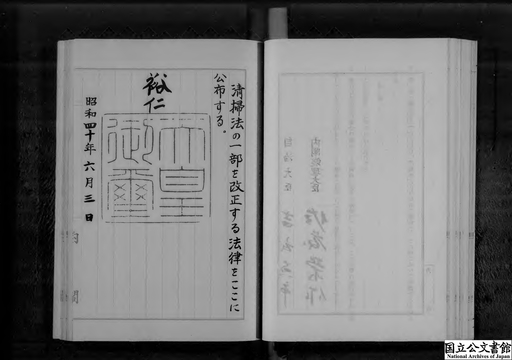 清掃法の一部を改正する法律をここに
公布する。
裕仁
天皇
御璽
昭和四十年六月三日
内閣
国立公文書館
National Archives of Japan